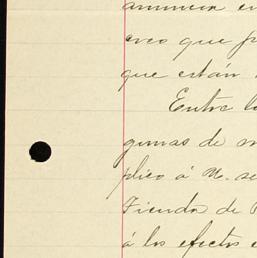 anuncia en
creo que
que están
Entre l
gunas de
plico á U. se
Tienda de
á los efectos